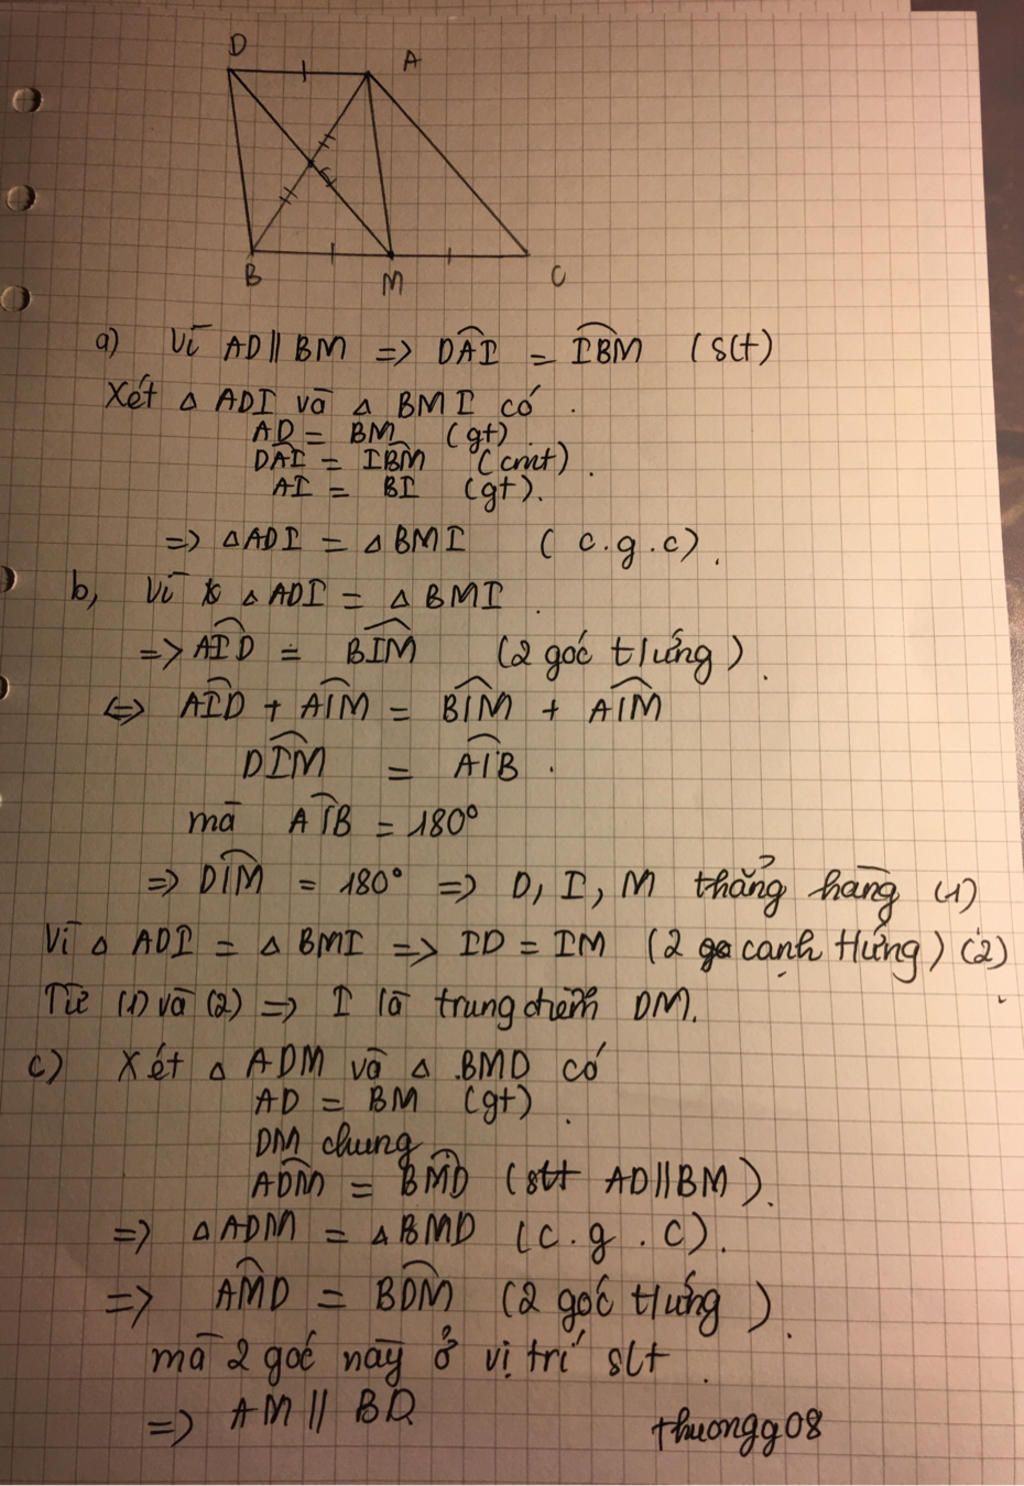 D
A
B
M
C
a) Vì AD // BM => DAI = IBM (slt)
Xét △ ADI và △ BMI có
AD = BM (gt)
DAI = IBM (cmt).
AI = BI (gt).
=> △ADI = △BMI (c.g.c).
b, Vì △ ADI = △ BMI.
=> AID = BIM (2 góc tứng).
<=> AID + AIM = BIM + AIM
DIM = AIB.
mà AIB = 180°
=> DIM = 180° => D, I, M thẳng hàng (1)
Vì △ ADI = △ BMI => ID = IM (2 cạnh tứng) (2)
Từ (1) và (2) => I là trung điểm DM.
c) Xét △ ADM và △ BMD có
AD = BM (gt).
DM chung
ADM = BMD (slt AD//BM).
=> △ADM = △BMD (c.g.c).
=> AMD = BDM (2 góc tứng).
mà 2 góc này ở vị trí slt.
=> AM // BD
thuongg08